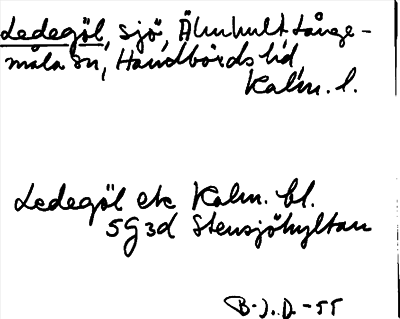 Ledegöl, sjö, Älmhult, Långe-
måla sn, Handbörds hd,
Kalm. l.
Ledegöl ek Kalm. bl.
5G3d Stensjöhyltan
B.J.D.-55